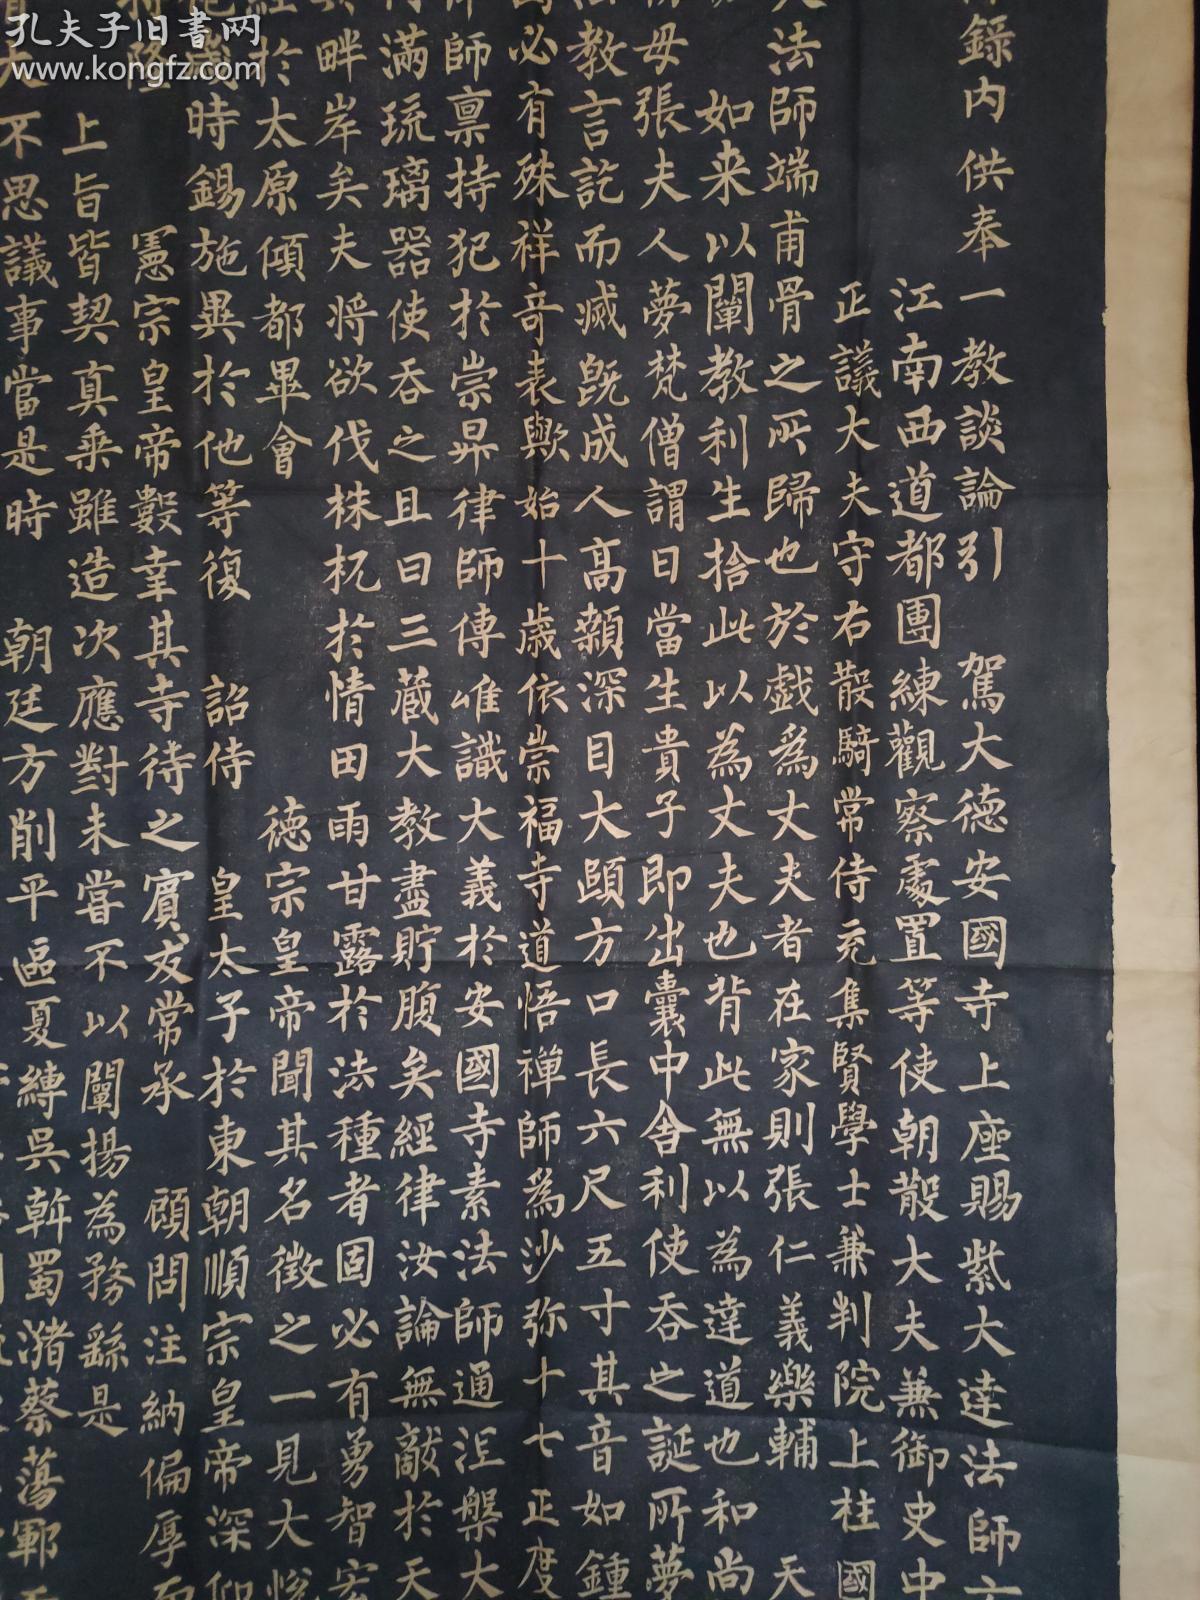 孔夫子旧书网
www.kongfz.com
錄内供奉一教談論引 駕大德安國寺上座賜紫大達法師
江南西道都團練觀察處置等使朝散大夫兼御史中
正議大夫守右散騎常侍充集賢學士兼判院上柱國
法師端甫骨之所歸也於戲為丈夫者在家則張仁義樂輔 天
如来以闡教利生捨此以為丈夫也背此無以為達道也和尚
母張夫人夢梵僧謂曰當生貴子即出囊中舍利使吞之誕所夢
教言訖而滅既成人高顙深目大頤方口長六尺五寸其音如鍾
必有殊祥奇表歟始十歲依崇福寺道悟禪師為沙弥十七正度
師禀持犯於崇昇律師傳唯識大義於安國寺素法師通涅槃大
滿琉璃器使吞之且曰三藏大教盡貯腹矣經律汝論無敵於天
畔岸矣夫將欲伐株杌於情田雨甘露於法種者固必有勇智
於太原傾都畢會 德宗皇帝聞其名徵之一見大悅
歲時錫施異於他等復 詔侍 皇太子於東朝順宗皇帝深仰
憲宗皇帝數幸其寺待之賓友常承 顧問注納偏厚而
上旨皆契真乘雖造次應對未嘗不以闡揚為務繇是
不思議事當是時 朝廷方削平區夏縛吳斡蜀瀦蔡蕩鄆